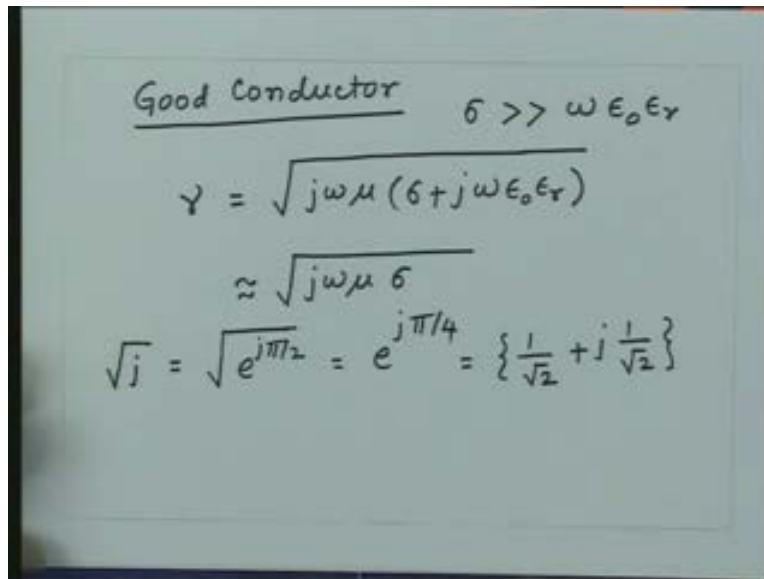 Good Conductor σ >> ω ϵ₀ ϵᵣ
γ = √(jωμ (σ + jω ϵ₀ ϵᵣ))
≈ √(jωμ σ)
√j = √(e^{jπ/2}) = e^{jπ/4} = {1/√2 + j 1/√2}